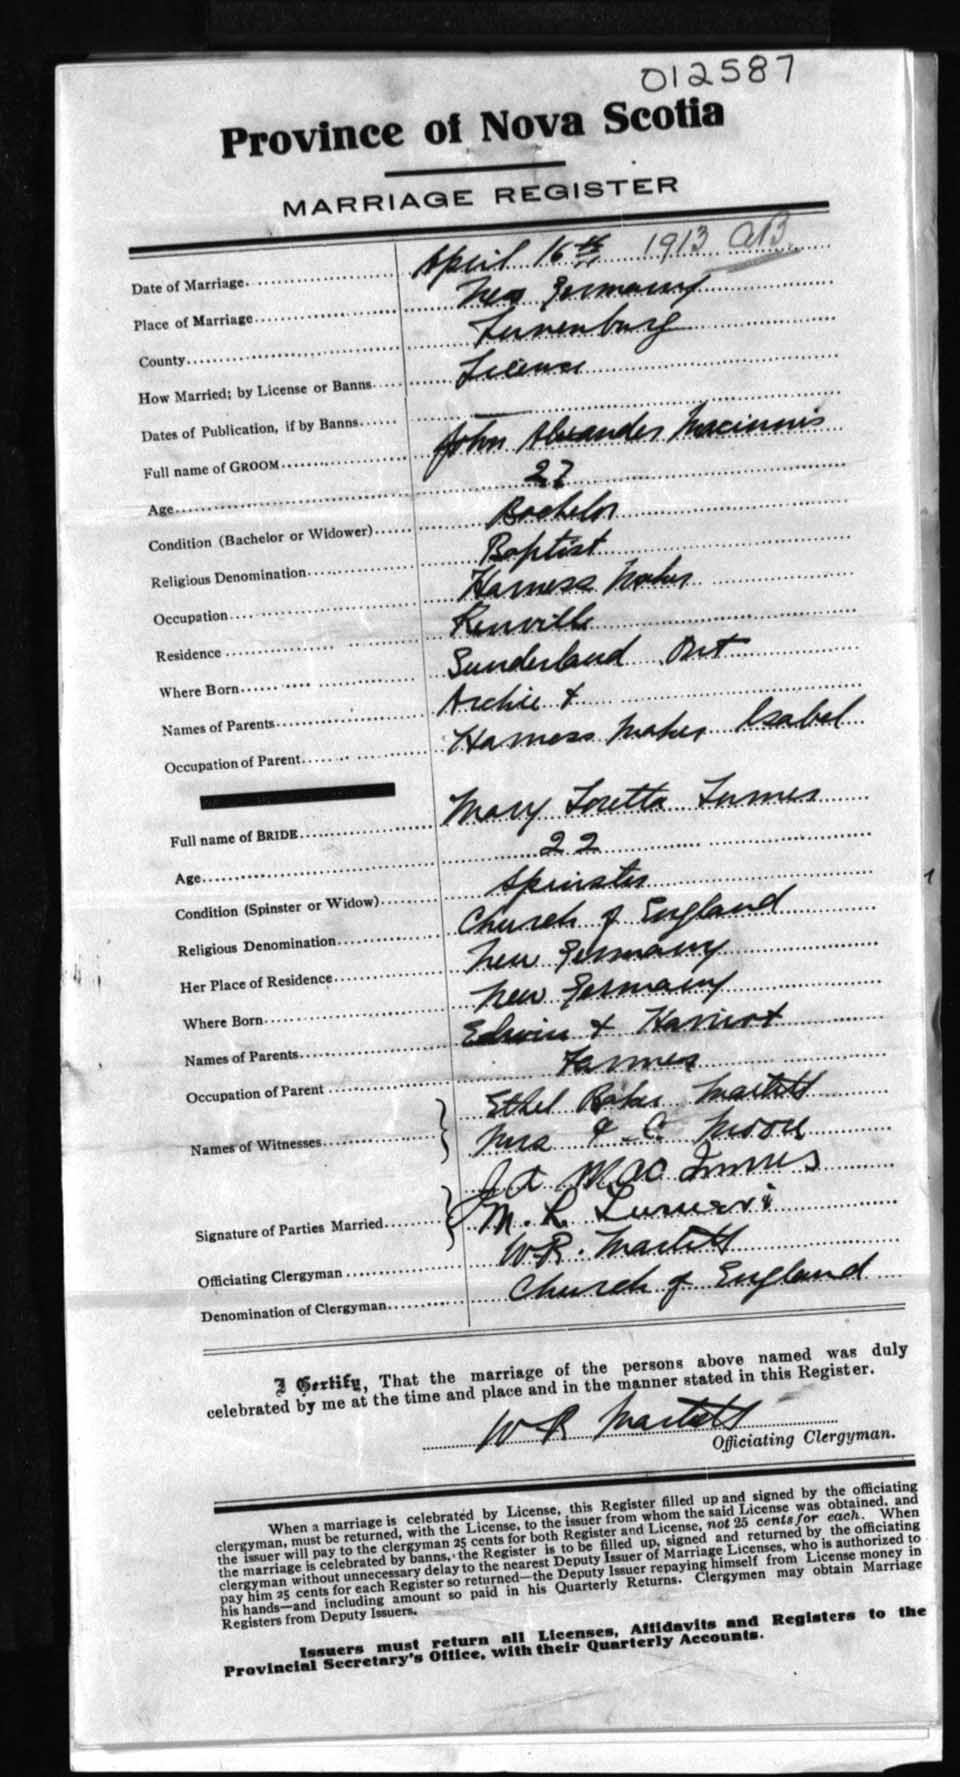 012587
Province of Nova Scotia
MARRIAGE REGISTER
Date of Marriage April 16th 1913 AB.
Place of Marriage New Germany
County Lunenburg
How Married; by License or Banns License
Dates of Publication, if by Banns —
Full name of GROOM John Alexander MacInnis
Age 27
Condition (Bachelor or Widower) Bachelor
Religious Denomination Baptist
Occupation Harness Maker
Residence
Where Born Sunderland Ont
Names of Parents Archie &
Occupation of Parent Harness Maker Isabel
Full name of BRIDE Mary Loretta
Age 22
Condition (Spinster or Widow) Spinster
Religious Denomination Church of England
Her Place of Residence New Germany
Where Born New Germany
Names of Parents Edwin & Harriet
Occupation of Parent Farmer
Names of Witnesses Ethel
Mrs C. Moore
Signature of Parties Married J A MacInnis
M. L.
Officiating Clergyman W.R.
Denomination of Clergyman Church of England
I Certify, That the marriage of the persons above named was duly
celebrated by me at the time and place and in the manner stated in this Register.
W R
Officiating Clergyman.
When a marriage is celebrated by License, this Register filled up and signed by the officiating
clergyman, must be returned, with the License, to the issuer from whom the said License was obtained, and
the issuer will pay to the clergyman 25 cents for both Register and License, not 25 cents for each. When
the marriage is celebrated by banns, the Register is to be filled up, signed and returned by the officiating
clergyman without unnecessary delay to the nearest Deputy Issuer of Marriage Licenses, who is authorized to
pay him 25 cents for each Register so returned—the Deputy Issuer repaying himself from License money in
his hands—and including amount so paid in his Quarterly Returns. Clergymen may obtain Marriage
Registers from Deputy Issuers.
Issuers must return all Licenses, Affidavits and Registers to the
Provincial Secretary's Office, with their Quarterly Accounts.